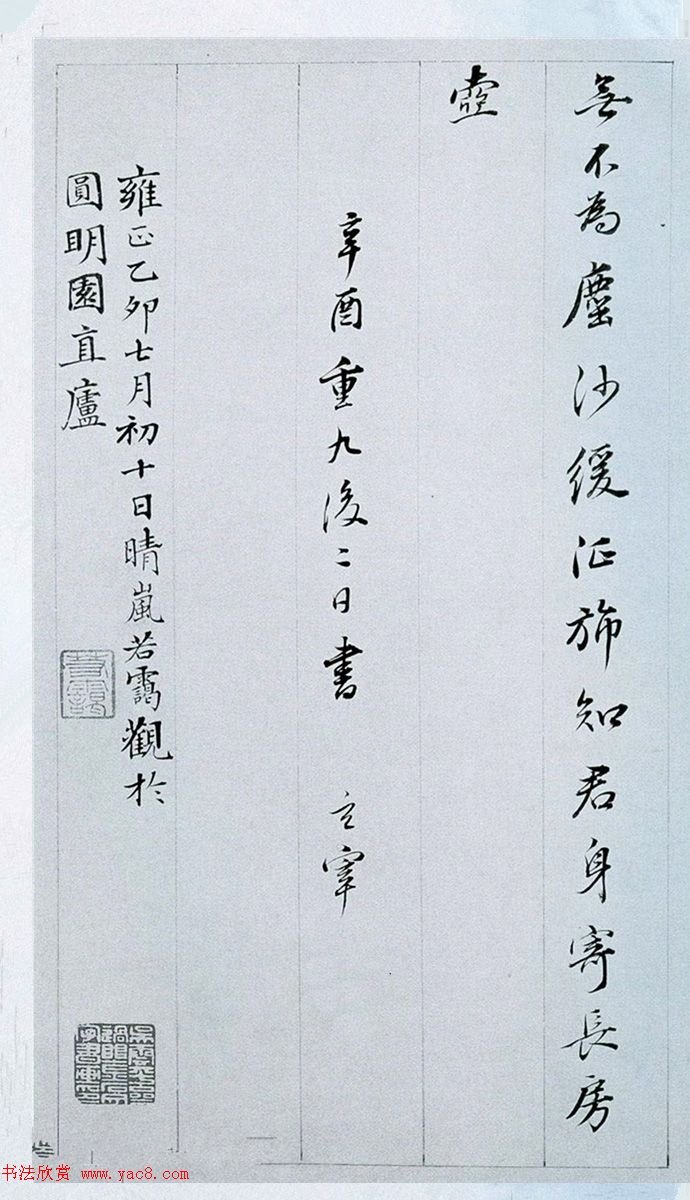 無不為塵沙緩征旆知君身寄長房
壺
辛酉重九後二日書 立宰
雍正乙卯七月初十日晴嵐若靄觀於
圓明園直廬
书法欣赏 www.yac8.com